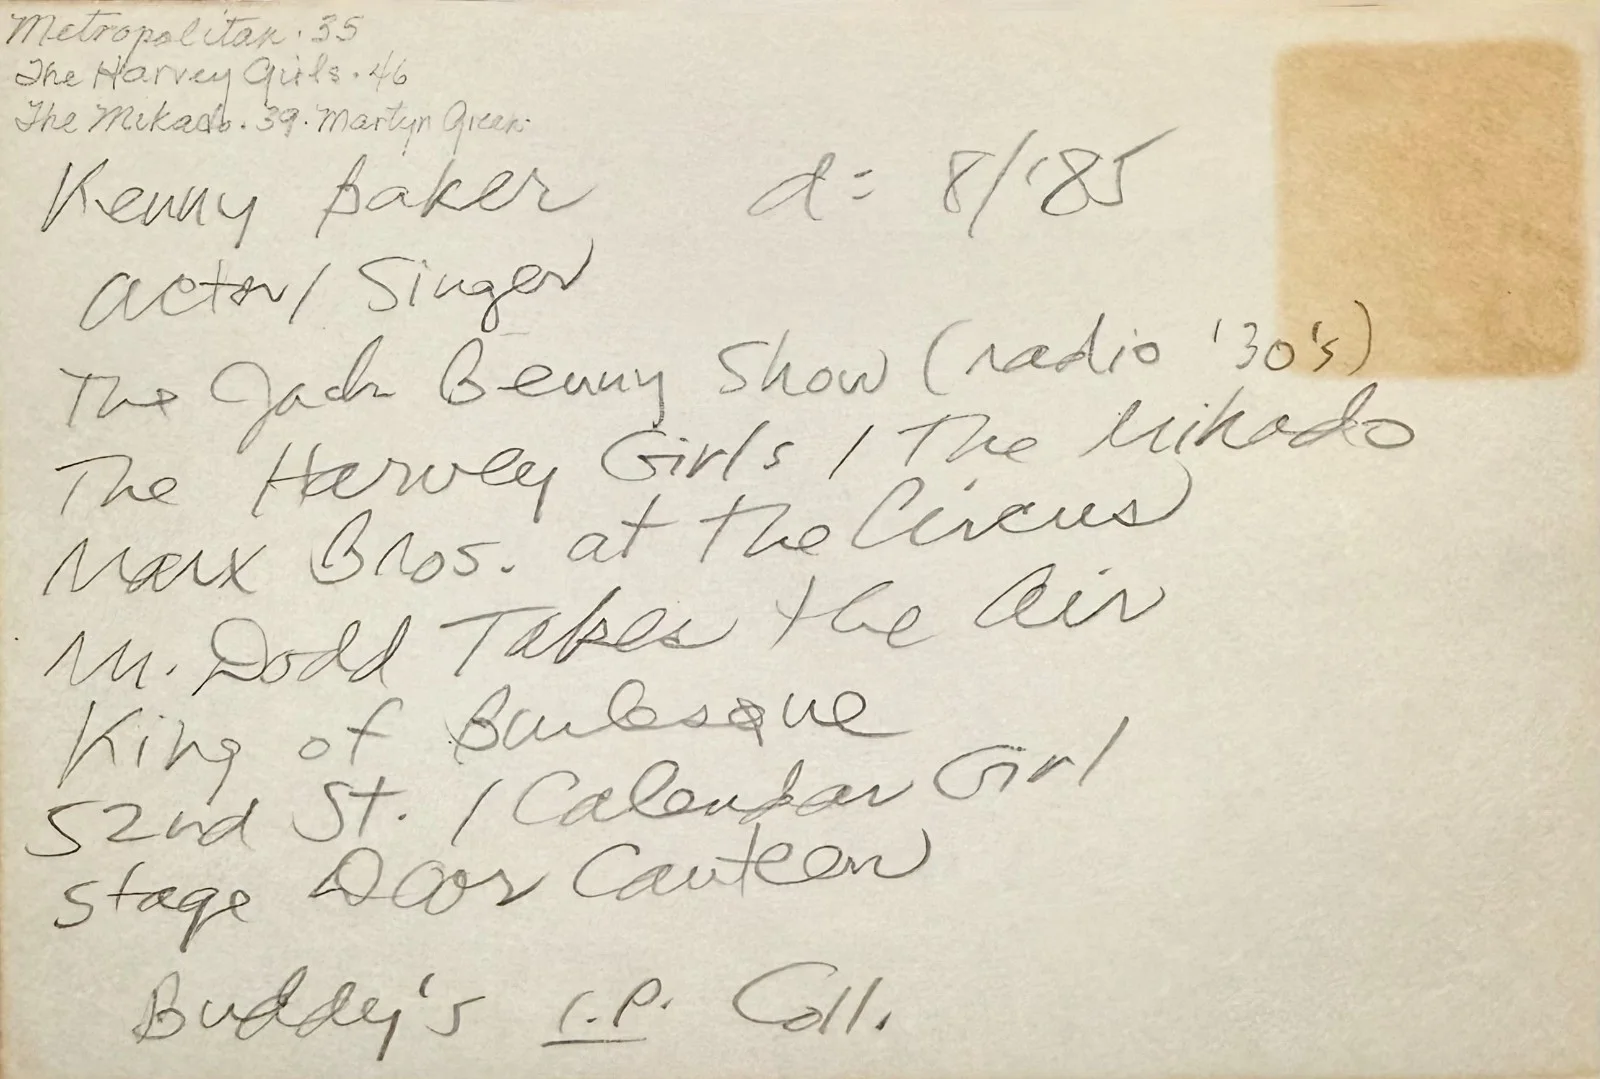 Metropolitan · 35
The Harvey Girls · 46
The Mikado · 39 · Martyn Green
Kenny Baker d = 8/'85
Actor / Singer
The Jack Benny Show (radio '30's)
The Harvey Girls / The Mikado
Marx Bros. at the Circus
Mr. Dodd Takes the Air
King of Burlesque
52nd St. / Calendar Girl
Stage Door Canteen
Buddy's I.P. Coll.